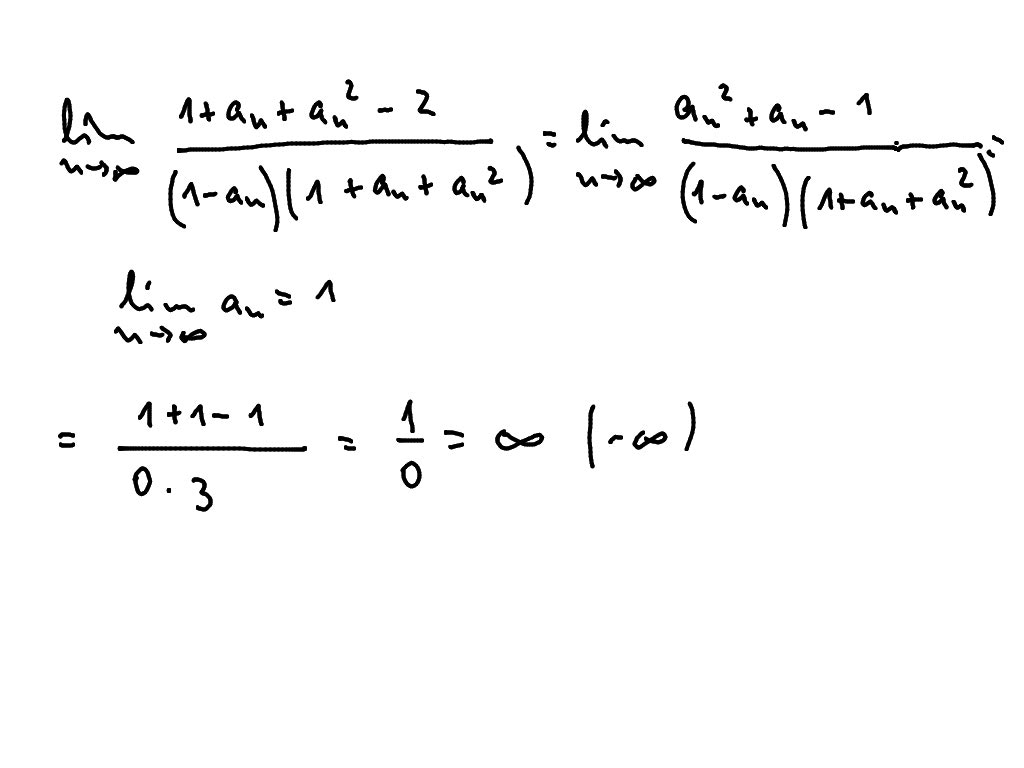 lim n→∞ (1+aₙ+aₙ² − 2)/((1−aₙ)(1+aₙ+aₙ²)) = lim n→∞ (aₙ²+aₙ−1)/((1−aₙ)(1+aₙ+aₙ²)) =
lim n→∞ aₙ = 1
= (1+1−1)/(0·3) = 1/0 = ∞ (−∞)